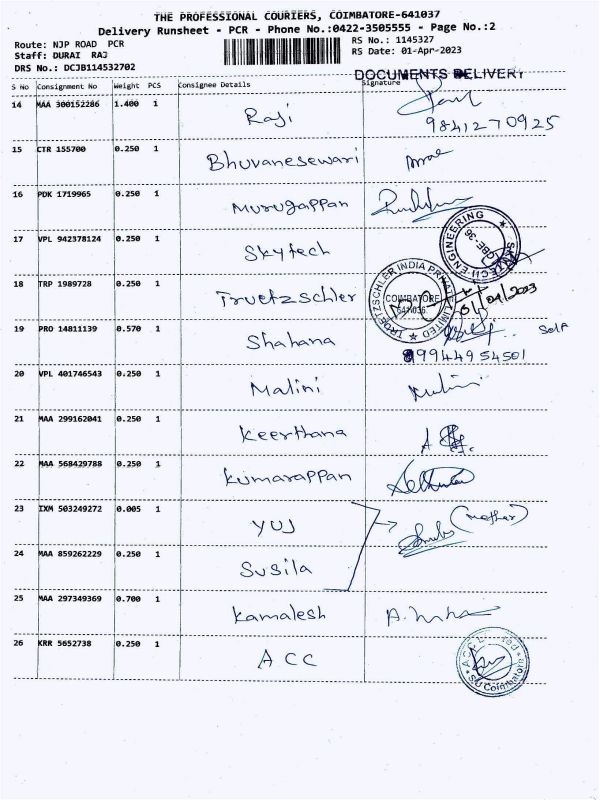 THE PROFESSIONAL COURIERS, COIMBATORE-641037
Delivery Runsheet - PCR - Phone No.:0422-3505555 - Page No.:2
Route: NJP ROAD PCR
RS No.: 1145327
Staff: DURAI RAJ
RS Date: 01-Apr-2023
DRS No.: DCJB114532702
DOCUMENTS DELIVERY
S No Consignment No Weight PCS Consignee Details Signature
14 MAA 300152286 1.400 1 Raji
9841270925
15 CTR 155700 0.250 1 Bhuvanesewari
16 PDK 1719965 0.250 1 Murugappan
17 VPL 942378124 0.250 1 Skytech
SKYTECH ENGINEERING
CBE-36
18 TRP 1989728 0.250 1 Truetzschler
TRUETZSCHLER INDIA PRIVATE LIMITED
COIMBATORE
641036
01/04/2023
19 PRO 14811139 0.570 1 Shahana
Self
99944954501
20 VPL 401746543 0.250 1 Malini Malini
21 MAA 299162041 0.250 1 Keerthana
22 MAA 568429788 0.250 1 Kumarappan
23 IXM 503249272 0.005 1 YUJ
(mother)
24 MAA 859262229 0.250 1 Susila
25 MAA 297349369 0.700 1 Kamalesh
26 KRR 5652738 0.250 1 ACC
ACC Limited
SU Coimbatore